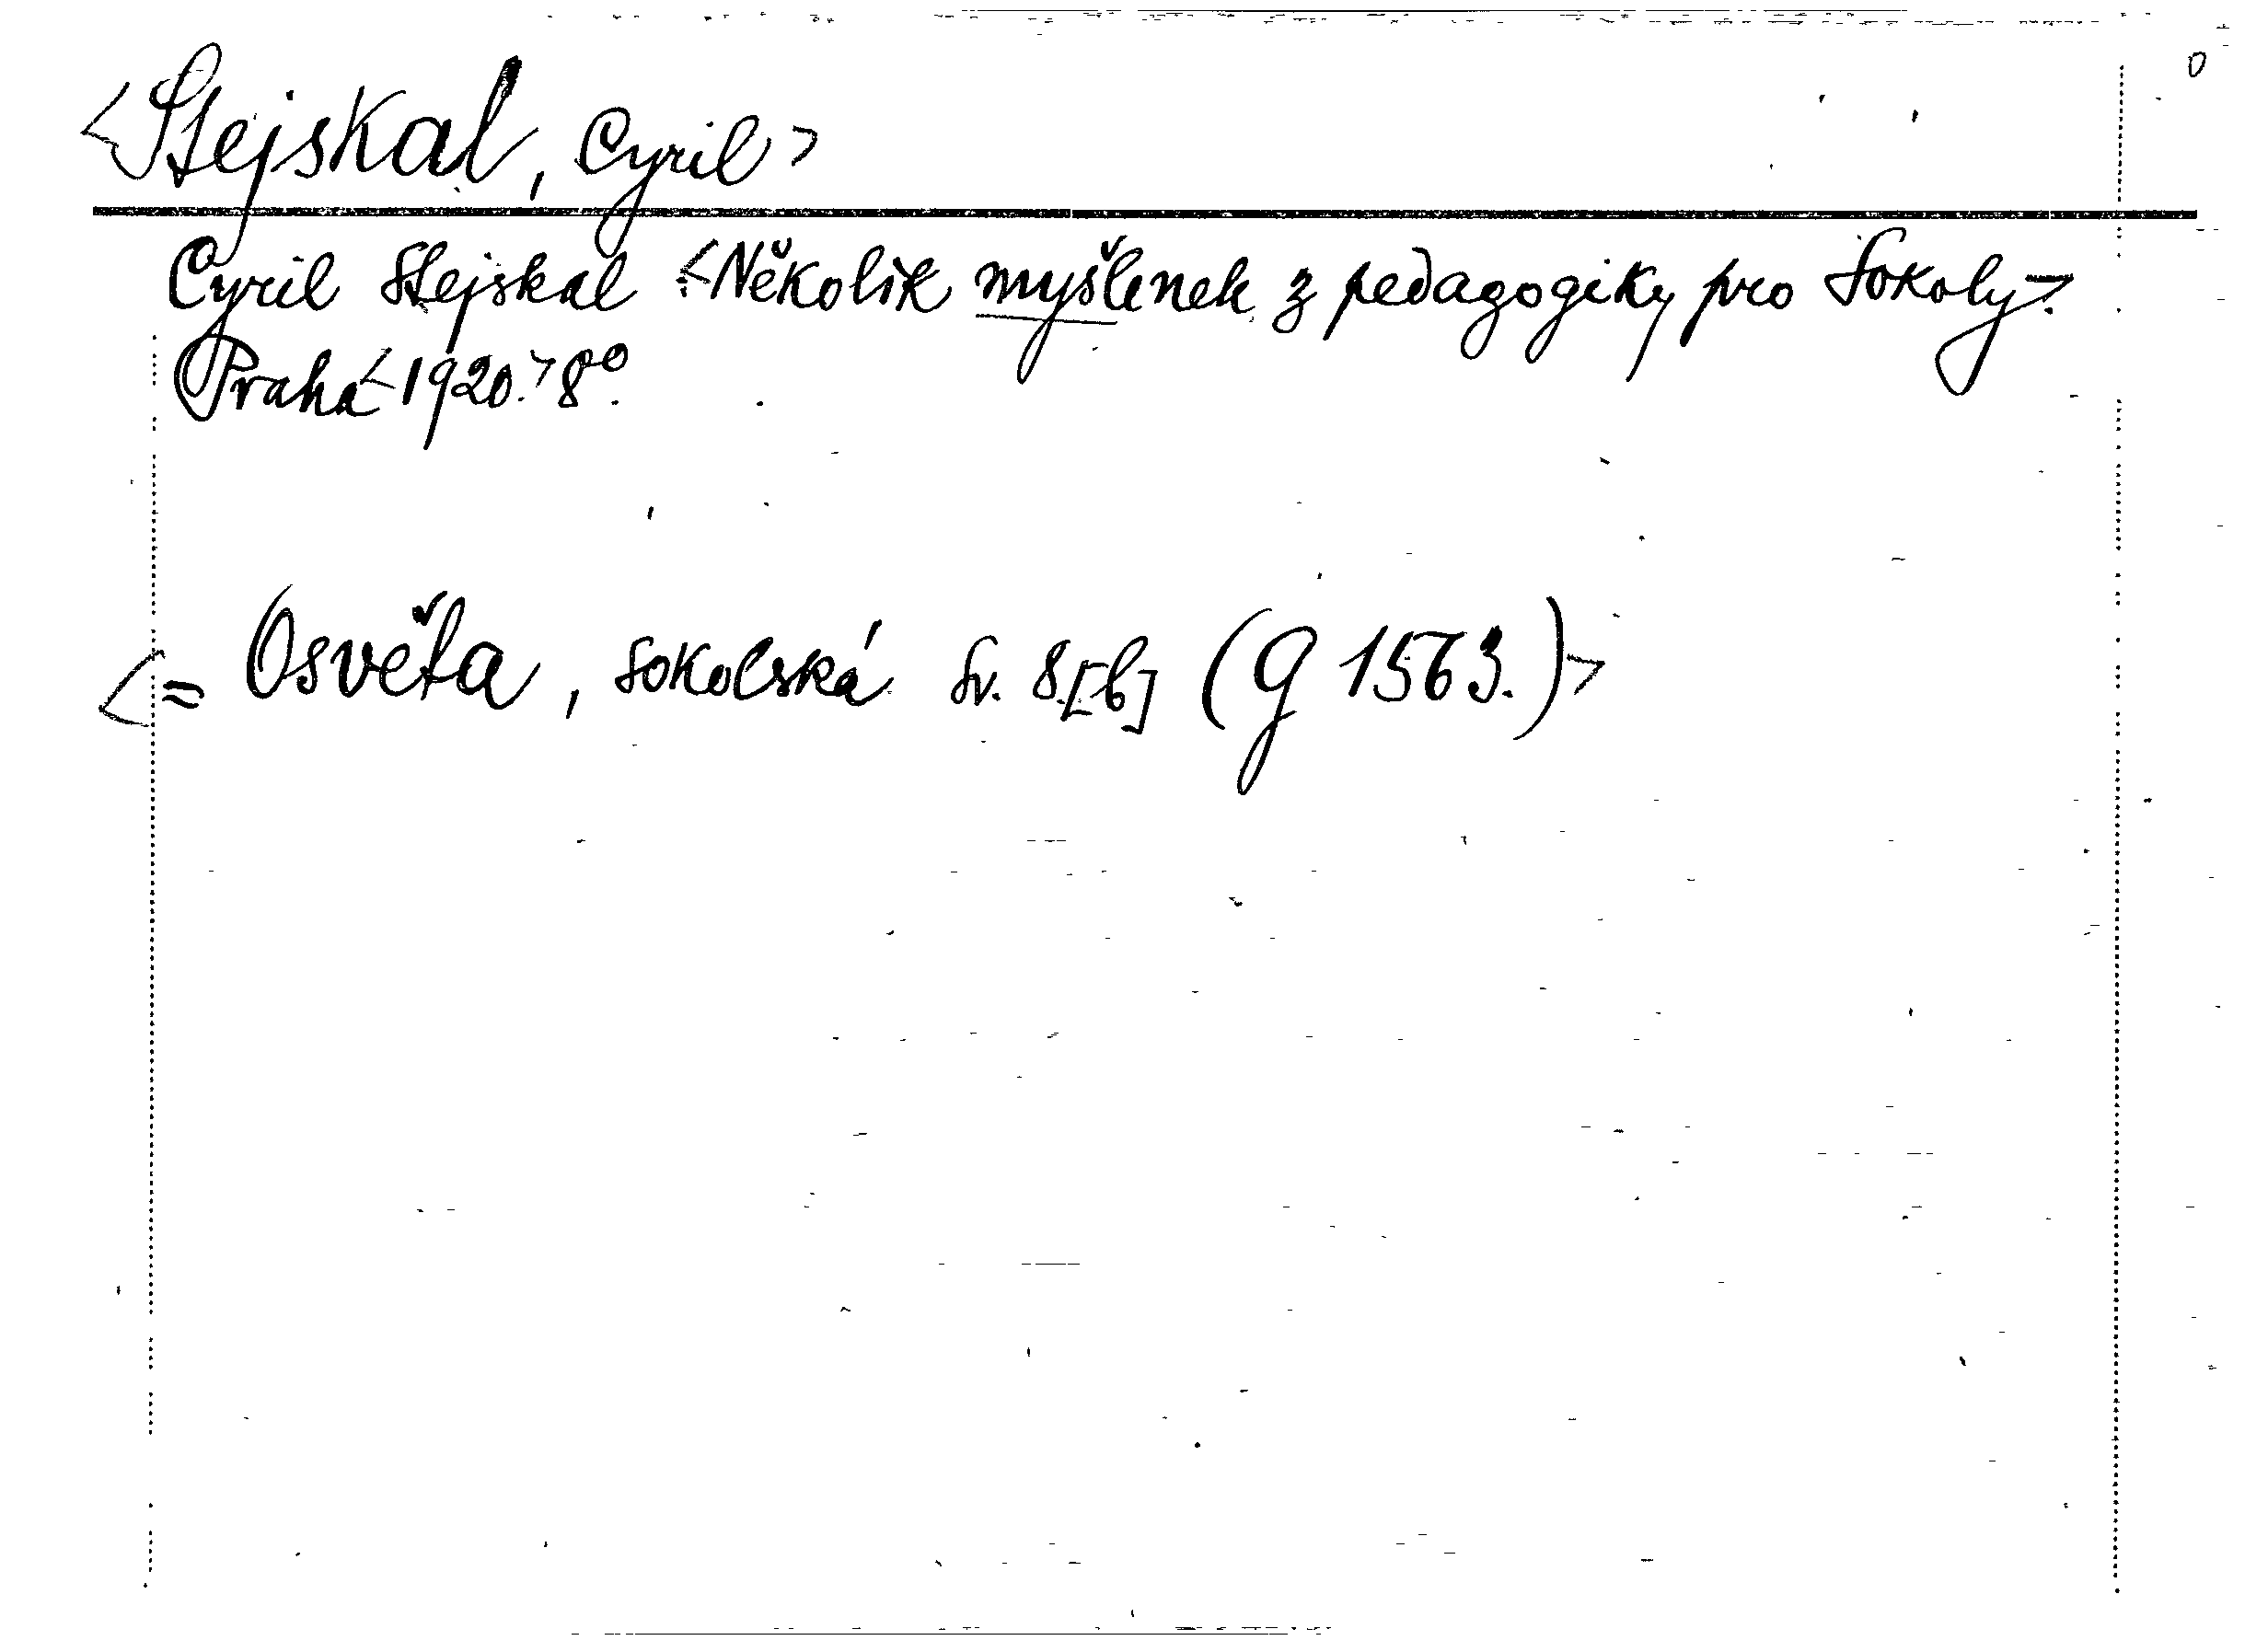 0
<Stejskal, Cyril>
Cyril Stejskal <Několik myšlenek z pedagogiky pro Sokoly>.
Praha <1920.> 8°.
<= Osvěta, sokolská Sv. 8.[b] (G 1563.)>